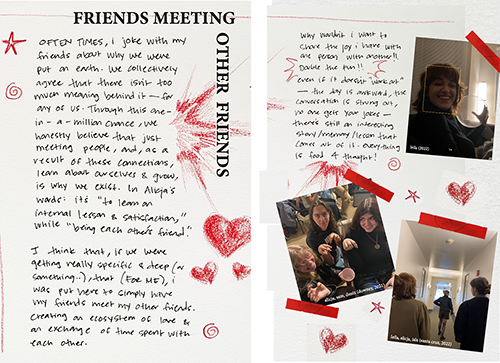 FRIENDS MEETING
OTHER FRIENDS
OFTEN TIMES, i joke with my
friends about why we were
put on earth. We collectively
agree that there isn't too
much meaning behind it — for
any of us. Through this one-
in-a-million chance, we
honestly believe that just
meeting people, and, as a
result of these connections,
learn about ourselves & grow,
is why we exist. In Alicja's
words: it's "to learn on
internal lesson & satisfaction,"
while "being each other's friend."
I think that, if we were
getting really specific & deep (or
something..), that (FOR ME), i
was put here to simply have
my friends meet my other friends.
creating an ecosystem of love &
an exchange of time spent with
each other.
Why wouldn't i want to
share the joy i have with
one person with another!!
Double the fun!!
even if it doesn't work out
— the day is awkward, the
conversation is strung out,
no one gets your jokes —
there's still an interesting
story/memory/lesson that
comes out of it. everything
is food 4 thought!
leila (2022)
(downey, 2021)
leila, alicja, isla (santa cruz, 2022)